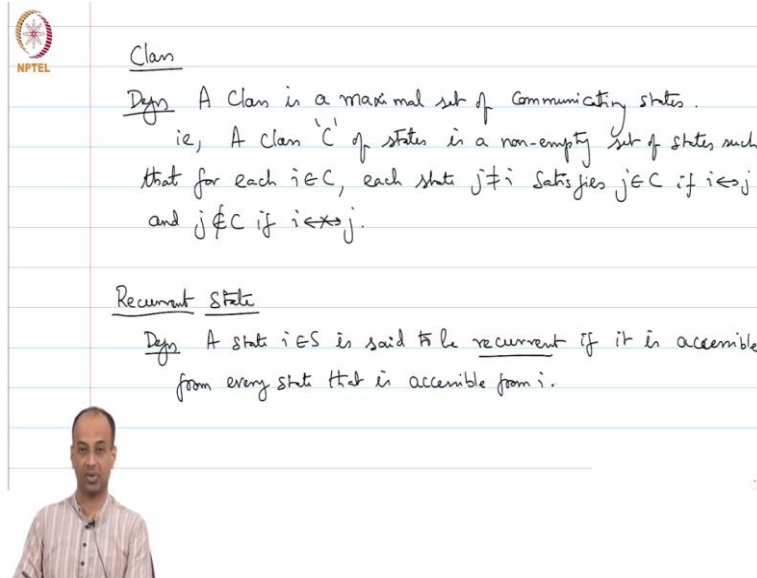 NPTEL
Class
Defn A Class is a maximal set of Communicating states.
ie, A class 'C' of states is a non-empty set of states such
that for each i∈C, each state j≠i Satisfies j∈C if i↔j
and j∉C if i↮j.
Recurrent State
Defn A state i∈S is said to be recurrent if it is accessible
from every state that is accessible from i.